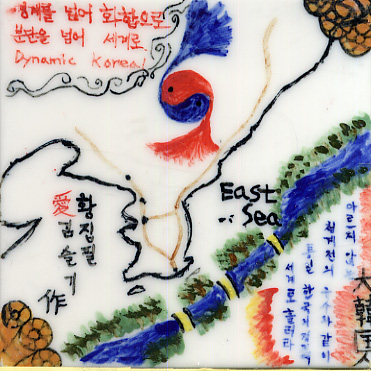 경계를 넘어 화합으로
분단을 넘어 세계로
Dynamic Korea!
East
Sea
황집필
愛
김슬기
作
마르지 않는
청계천의 같이
통일 한국의
세계로
大韓国人